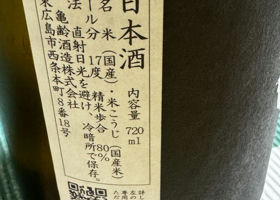 日本酒
内容量 720ml
名 米(国産)・米こうじ(国産米)
ール分 17度 精米歩合 80%
法 直射日光を避け、冷暗所で保存。
亀齢酒造株式会社
東広島市西条本町8番18号